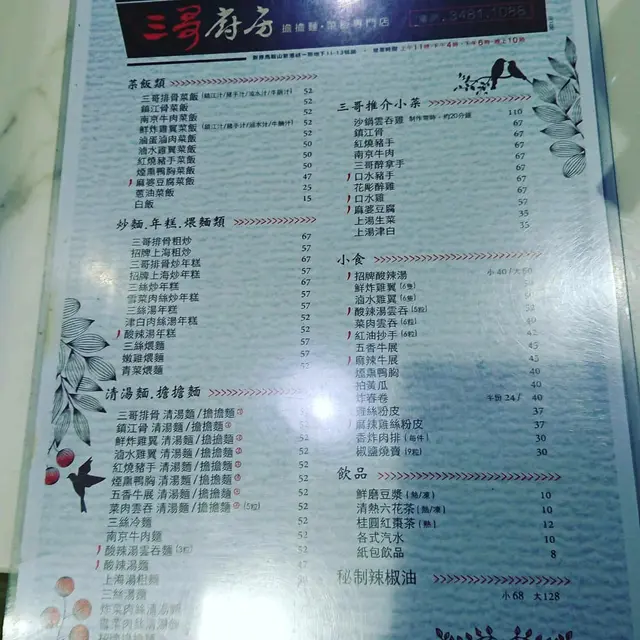 三哥廚房 擔擔麵·菜飯專門店
菜飯類
三哥排骨菜飯 (鎮江汁/豬手汁/滷水汁/牛腩汁) 52
鎮江骨菜飯 52
南京牛肉菜飯 52
鮮炸雞翼菜飯 (鎮江汁/豬手汁/滷水汁/牛腩汁) 52
滷蛋滷肉菜飯 50
滷水雞翼菜飯 50
紅燒豬手菜飯 50
煙熏鴨胸菜飯 50
麻婆豆腐菜飯 47
蔥油菜飯 25
白飯 15
炒麵.年糕.煨麵類
三哥排骨粗炒 67
招牌上海粗炒 57
三哥排骨炒年糕 67
招牌上海炒年糕 57
三絲炒年糕 57
雪菜肉絲炒年糕 57
三絲湯年糕 52
津白肉絲湯年糕 52
酸辣湯年糕 52
三絲煨麵 57
嫩雞煨麵 57
青菜煨麵
清湯麵.擔擔麵
三哥排骨 清湯麵/擔擔麵
鎮江骨 清湯麵/擔擔麵
鮮炸雞翼 清湯麵/擔擔麵 52
滷水雞翼 清湯麵/擔擔麵 52
紅燒豬手 清湯麵/擔擔麵 52
煙熏鴨胸 清湯麵/擔擔麵 52
五香牛展 清湯麵/擔擔麵 52
菜肉雲吞 清湯麵/擔擔麵 (5粒) 52
三絲冷麵 52
南京牛肉麵 52
酸辣湯雲吞麵 52
酸辣湯麵 47
上海湯粗麵
三絲湯麵
炸菜肉絲清湯麵
雪菜肉絲清湯麵
招牌擔擔麵
三哥推介小菜
沙鍋雲吞雞 製作需時,約20分鐘 110
鎮江骨 67
紅燒豬手 67
南京牛肉 67
三哥醉拿手 67
口水豬手 67
花彫醉雞 67
口水雞 67
麻婆豆腐 57
上湯生菜 35
上湯津白 35
小食
招牌酸辣湯 小 40/大
鮮炸雞翼 (6隻)
滷水雞翼 (6隻)
酸辣湯雲吞 (5粒)
菜肉雲吞 (6粒)
紅油抄手 (6粒)
五香牛展 45
麻辣牛展 45
煙熏鴨胸 40
拍黃瓜
炸春卷 24/ 40
雞絲粉皮 37
麻辣雞絲粉皮 37
香炸肉排 (每件) 30
椒鹽燒賣 (9粒) 30
飲品
鮮磨豆漿 (熱/凍) 10
清熱六花茶 (熱/凍) 10
桂圓紅棗茶 (熱) 12
各式汽水 10
紙包飲品 8
秘制辣椒油
小 68 大128